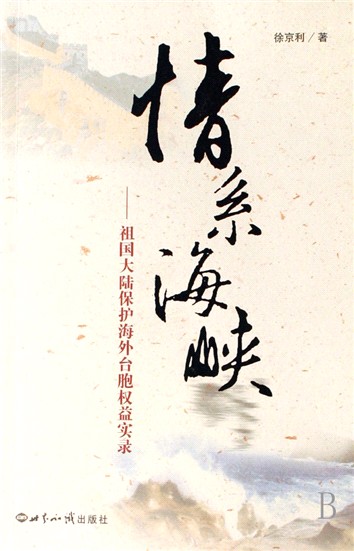 徐京利/著
情系海峡
——祖国大陆保护海外台胞权益实录
世界知识出版社
B